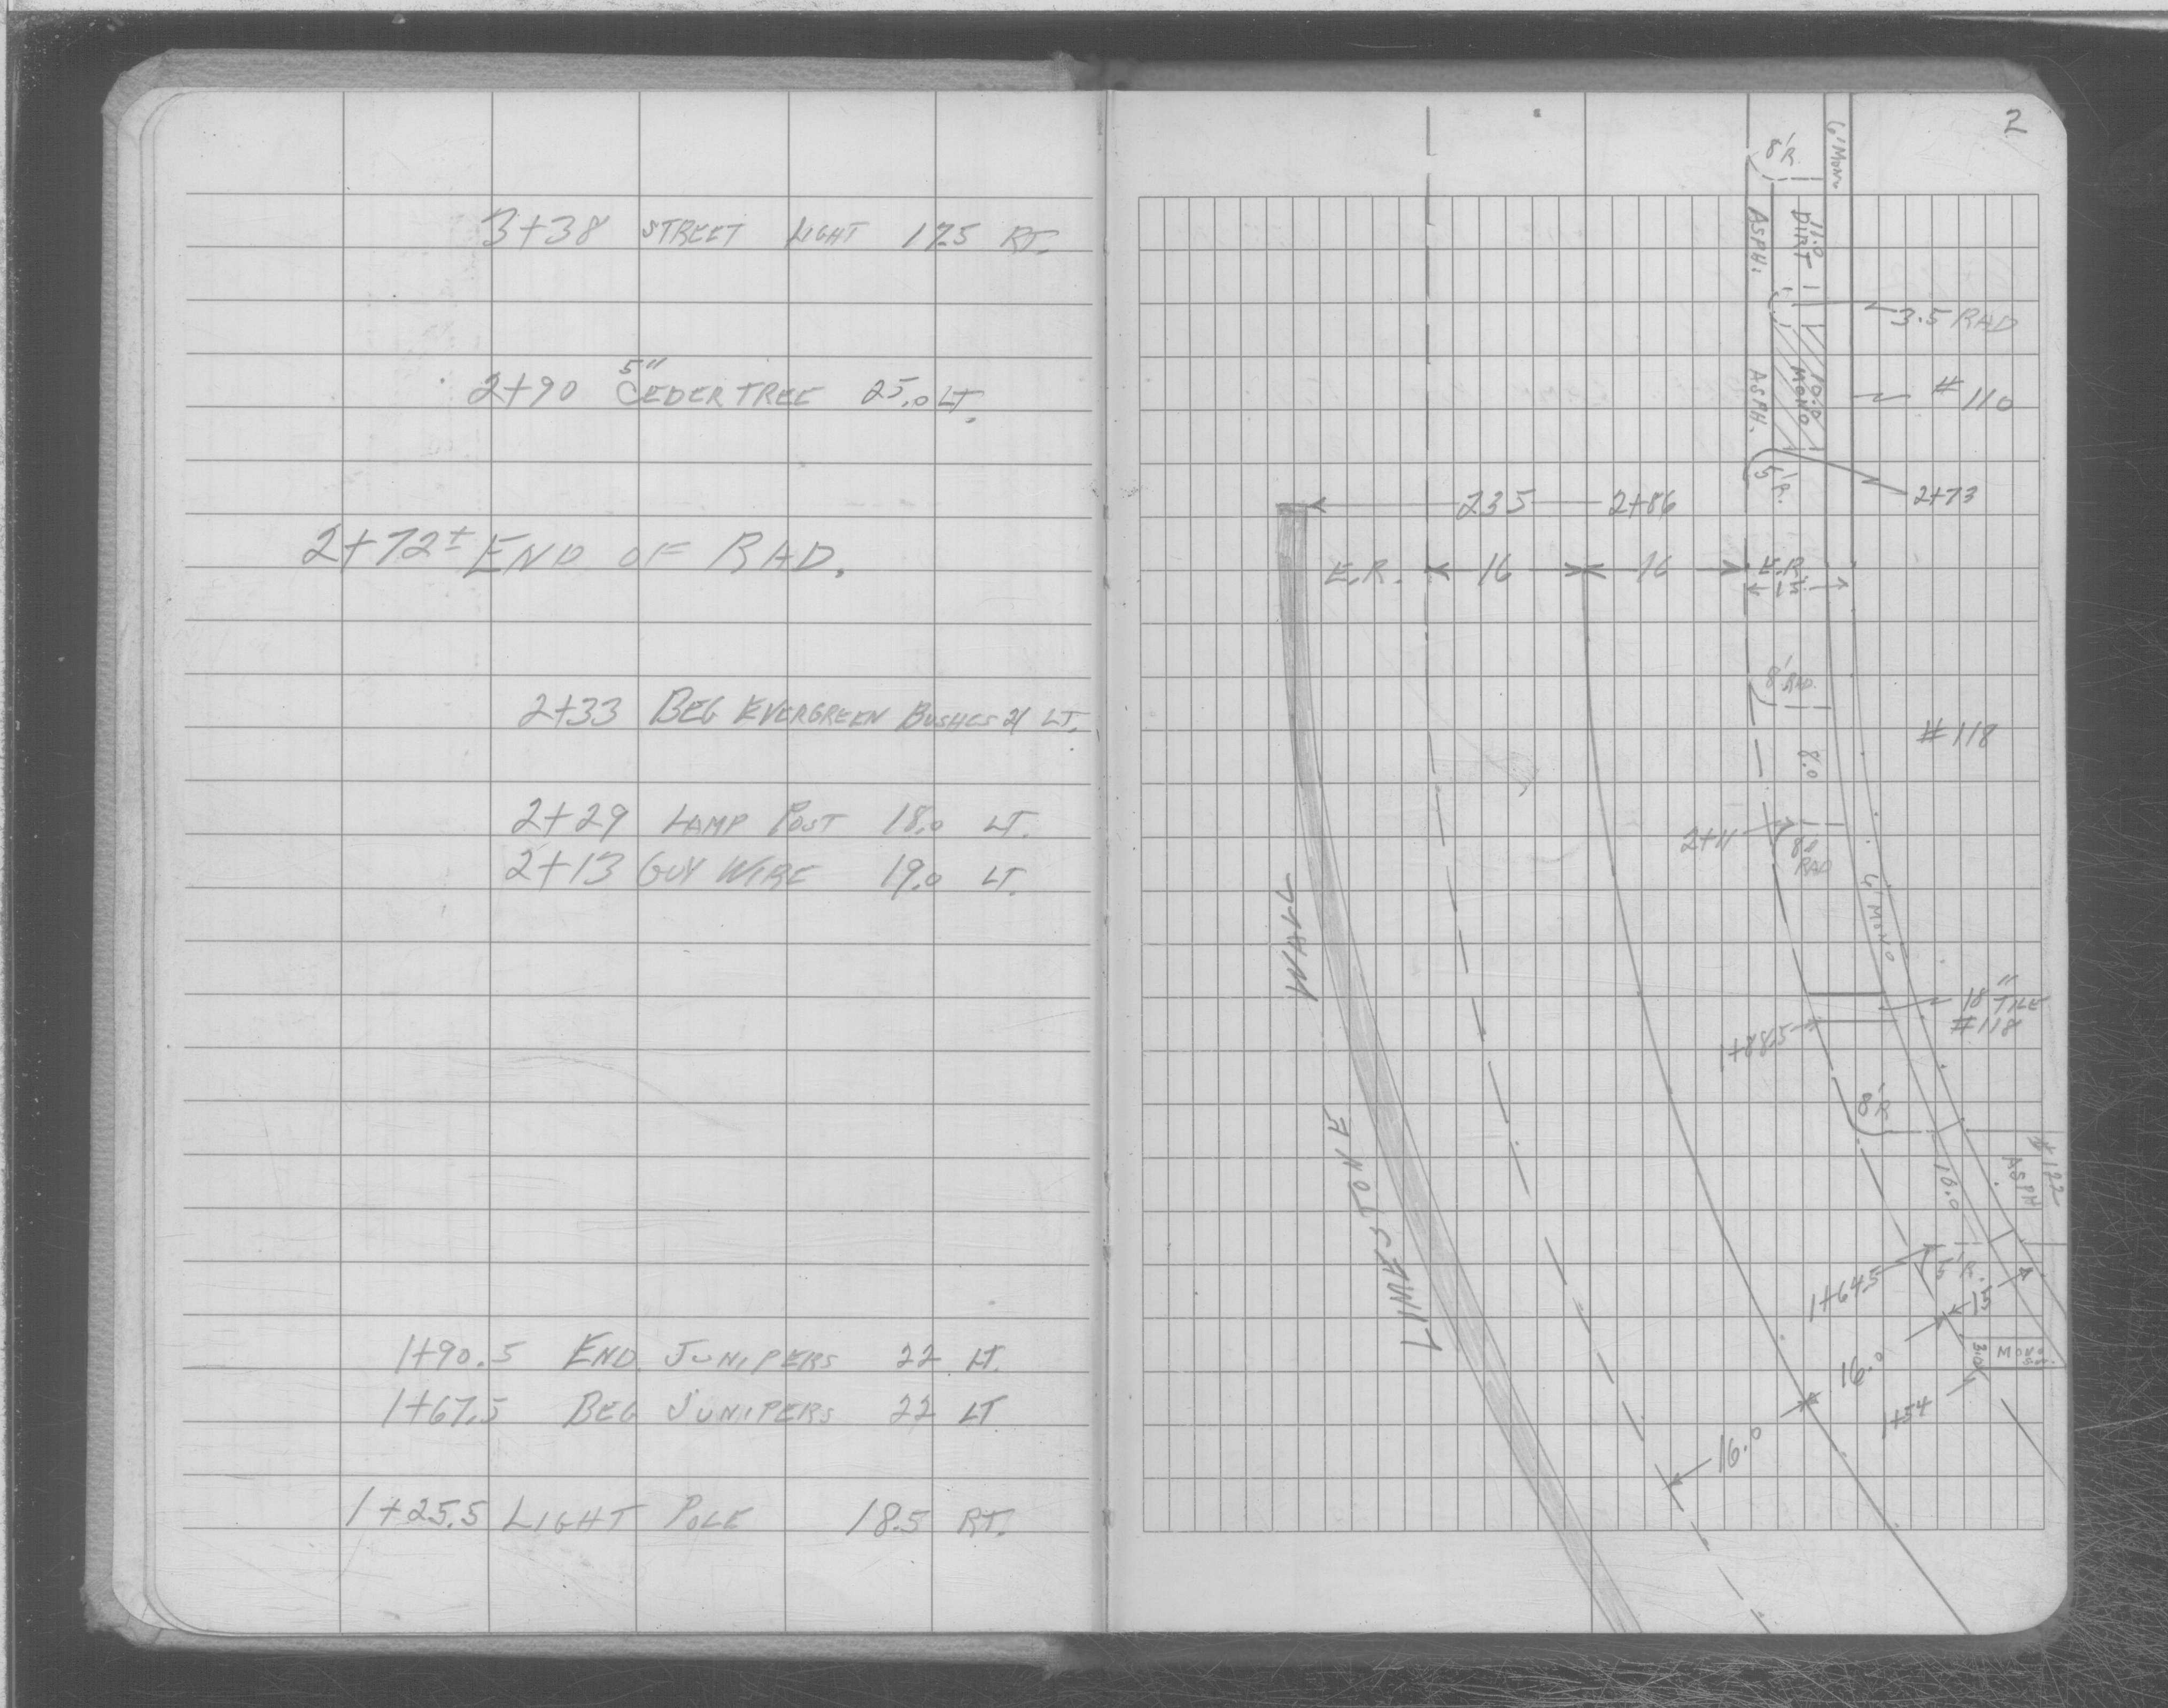 3+38 STREET LIGHT 17.5 RT.
5"
2+90 CEDER TREE 25.0 LT.
2+72± END OF RAD.
2+33 BEG EVERGREEN BUSHES 21 LT.
2+29 LAMP POST 18.0 LT.
2+13 GUY WIRE 19.0 LT.
1+90.5 END JUNIPERS 22 LT.
1+67.5 BEG JUNIPERS 22 LT
1+25.5 LIGHT POLE 18.5 RT.
2
8'R.
6' MONO
ASPH.
11.0
DIRT
3.5 RAD
ASPH.
10.0
MONO
#110
5'R.
2+73
235
2+86
E.R.
16
16
E.R.
8' RAD.
#118
8.0
2+11
8'
RAD
6' MONO
18" TILE
#118
1+88.5
8'R
#122
ASPH
16.0
1+64.5
5'R.
15
3.0
MONO
1+54
16.0
16.0
LIMESTONE WALL